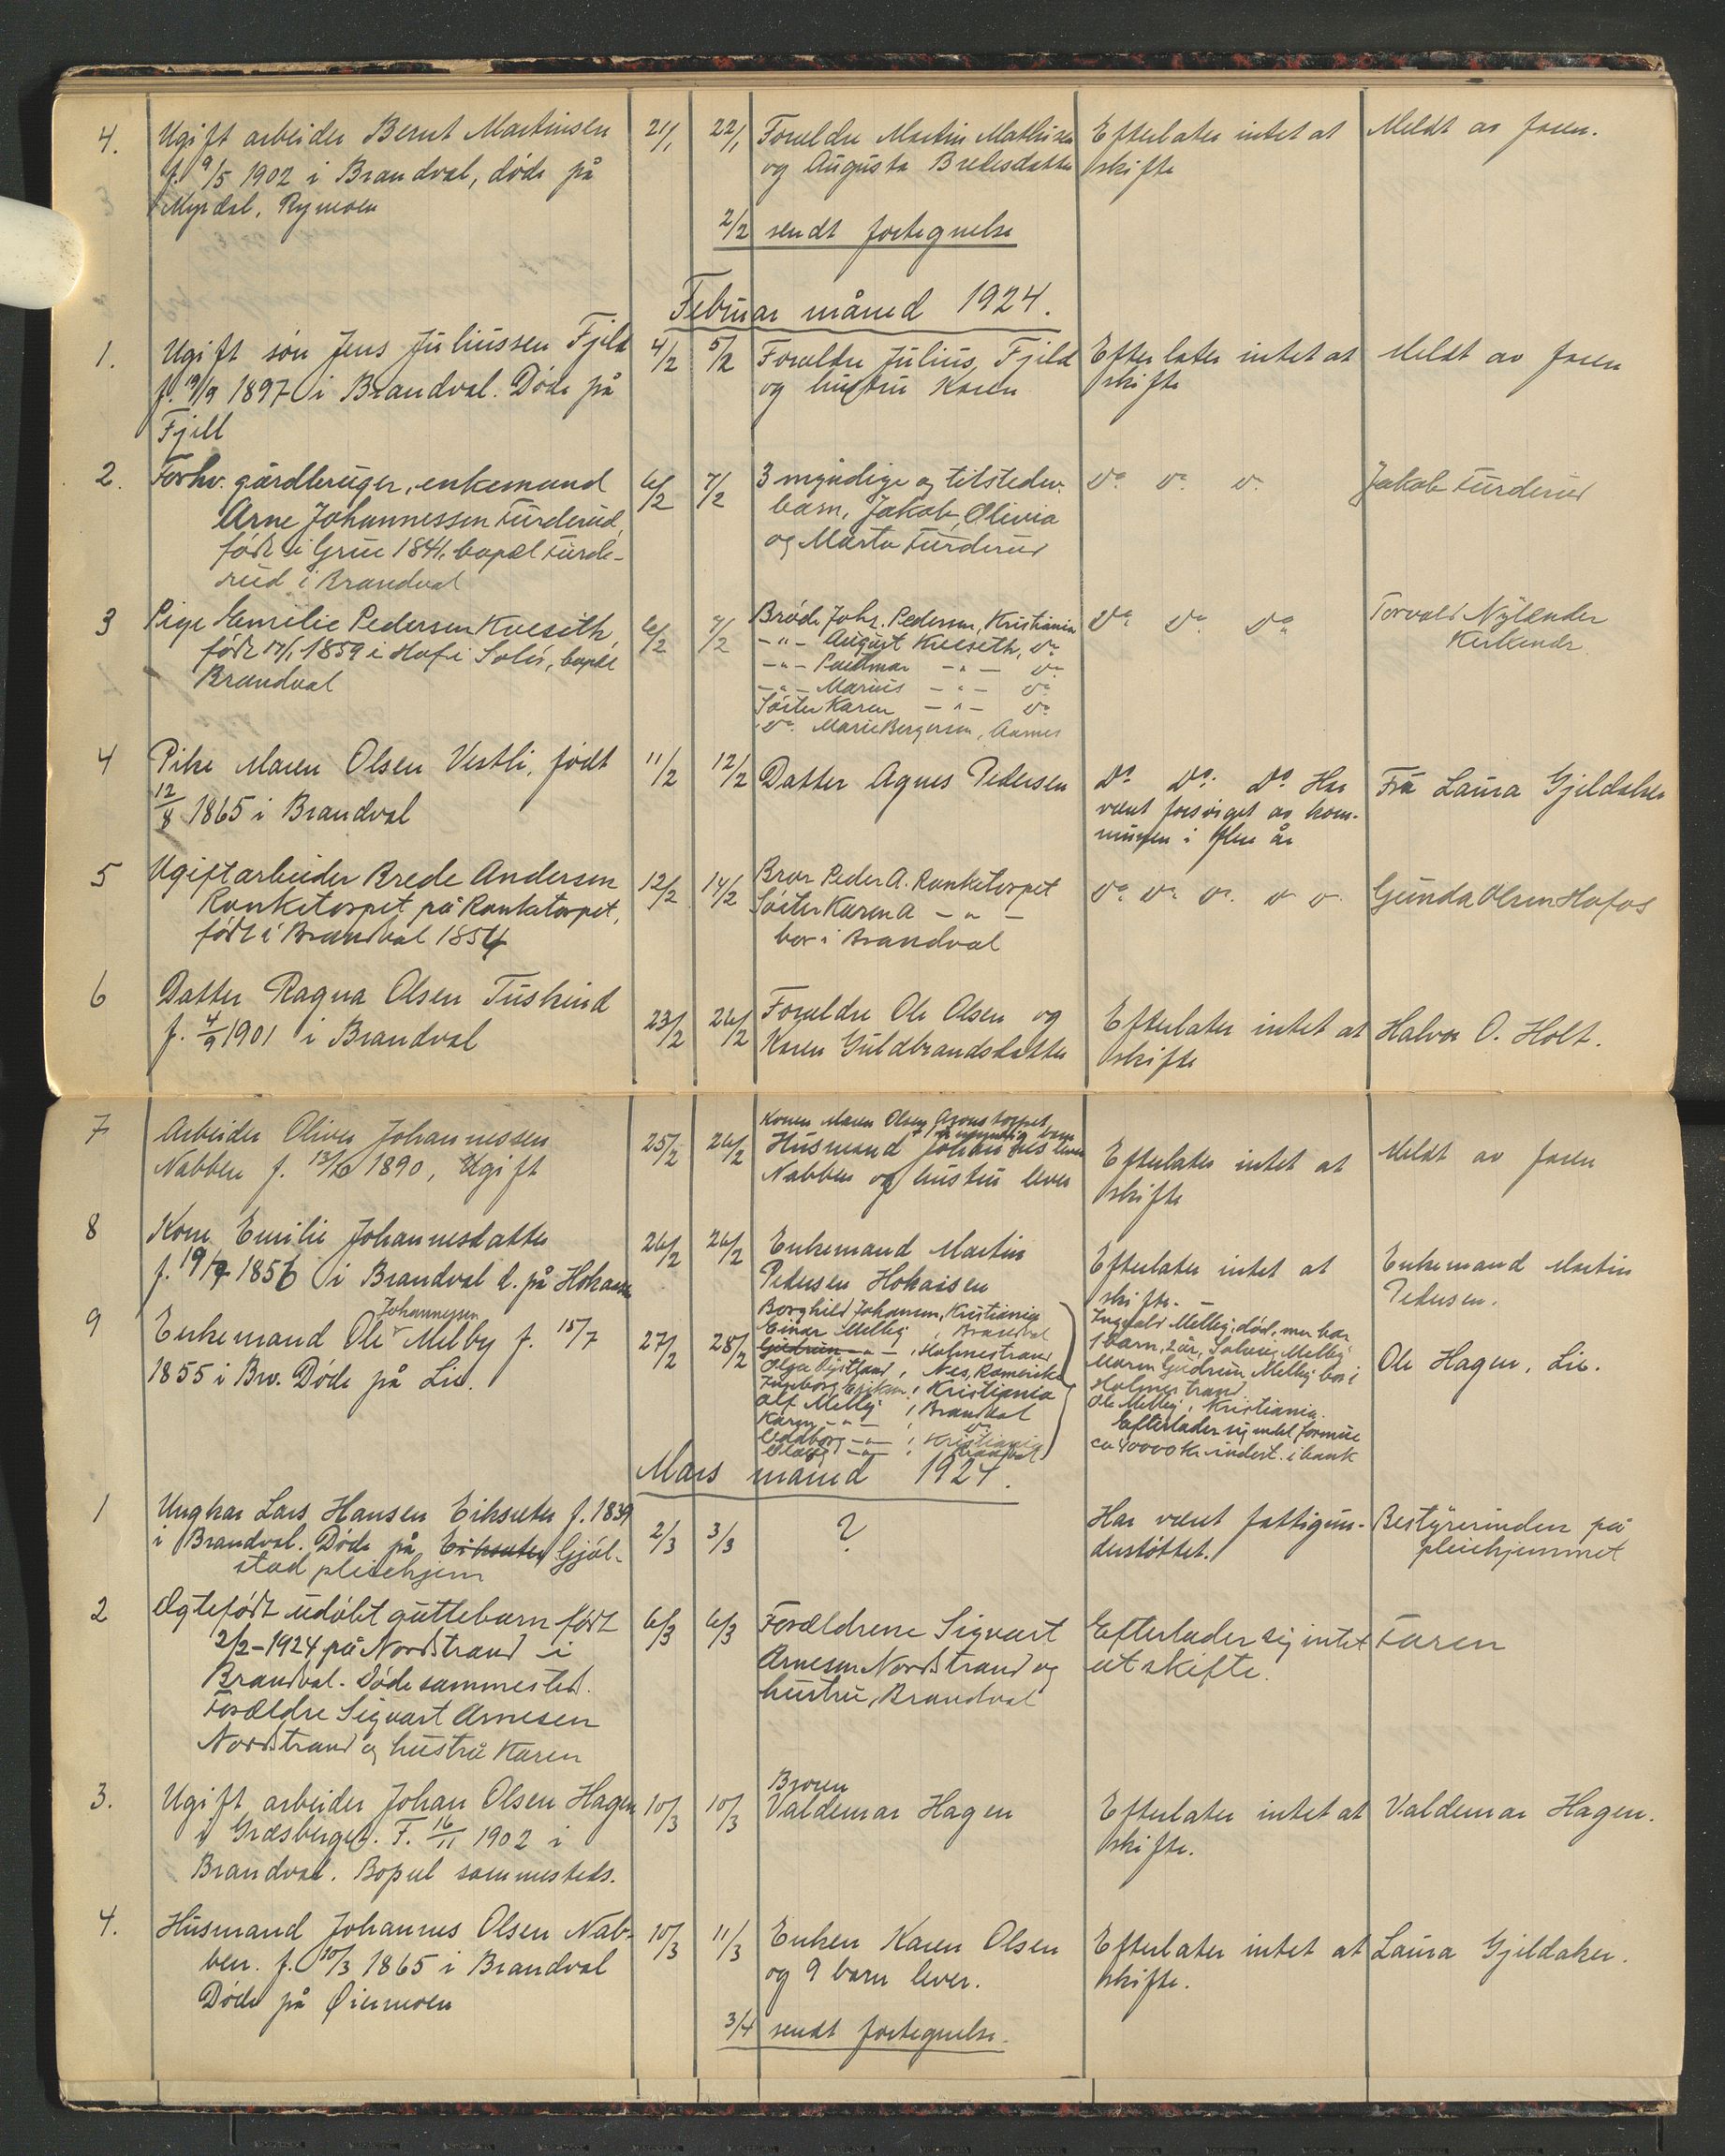 4. Ugift arbeider Bernt Martinsen 21/1 22/1 Forældre Martin Mathisen Efterlater intet at Meldt av faren.
f. 9/5 1902 i Brandval, døde på og Augusta Bredesdatter skifte
Myrdal, Rymoen
2/2 sendt fortegnelse
Februar måned 1924.
1. Ugift søn Jens Juliussen Fjeld 4/2 5/2 Forældre Julius Fjeld Efterlater intet at Meldt av faren
f. 19/9 1897 i Brandval. Døde på og hustru Karen skifte
Fjell
2. Forhv. gårdbruger, enkemand 6/2 7/2 3 myndige og tilstedev. do do do Jakob Furderud
Arne Johannessen Furderud, barn, Jakob, Olivia
født i Grue 1841, bopæl Furde- og Marta Furderud
rud i Brandval
3 Pige Emilie Pedersen Kveseth, 6/2 7/2 Broder Johs. Pedersen, Kristiania do do do Torvald Nylænder
født 17/1 1859 i Hof i Solør, bopæl -"- August Kveseth, do Kirkenær
Brandval -"- Paidmar -"- do
-"- Marius -"- do
Søster Karen -"- do
do Marie Bergersen, Aarnes
4 Pike Maren Olsen Vestli, født 11/2 12/2 Datter Agnes Pedersen do do do Har Fru Laura Gjeldaker
12/8 1865 i Brandval været forsørget av kom-
munen i flere år
5 Ugift arbeider Brede Andersen 12/2 14/2 Bror Peder A. Ronketorpet do do do do do Gunda Olsen Hofos
Ronketorpet på Ronketorpet, Søster Karen A -"-
født i Brandval 1854 bor i Brandval
6 Datter Ragna Olsen Tuskind 23/2 26/2 Forældre Ole Olsen og Efterlater intet at Halvor O. Holt.
f. 4/9 1901 i Brandval Karen Guldbrandsdatter skifte
Konen Maren Olsen
7 Arbeider Oliver Johannessen 25/2 26/2 Husmand Johannes Efterlater intet at Meldt av faren
Nabben f. 13/6 1890, Ugift Nabben og hustru lever skifte
8 Kone Emilie Johannesdatter 26/2 26/2 Enkemand Martin Efterlater intet at Enkemand Martin
f. 19/7 1856 i Brandval d. på Hokaasen Pedersen Hokaasen skifte. — Pedersen.
9 Enkemand Ole Johannessen Melby f. 15/7 27/2 28/2 Borghild Johansen, Kristiania Ingvald Melby, død, men har Ole Hagen, Lie.
1855 i Brv. Døde på Lie. Einar Melby, Brandval 1 barn, 2 år, Solveig Melby
Gudrun -"-, Holmestrand Maren Gudrun Melby bor i
Olga, Nes, Romerike Holmestrand
Ingeborg, Kristiania Ole Melby, Kristiania.
Alf Melby, Brandval Efterlader sig endel formue
Karen -"-, do ca 40000 kr indest. i bank
Valborg -"-, Kristiania
Olaug -"-, Brandval
Mars måned 1924.
1 Ungkar Lars Hansen Eikseter f. 1839 2/3 3/3 ? Har været fattigun- Bestyrerinden på
i Brandval. Døde på Eikseter Gjøl- derstøttet. pleiehjemmet
stad pleiehjem
2 Ægtefødt udøbt guttebarn født 6/3 6/3 Forældrene Sigvart Efterlader sig intet Faren
2/2-1924 på Nordstrand i Arnesen Nordstrand og at skifte.
Brandval. Døde sammested. hustru, Brandval
Forældre Sigvart Arnesen
Nordstrand og hustru Karen
3. Ugift arbeider Johan Olsen Hagen 10/3 10/3 Broren Valdemar Hagen Efterlater intet at Valdemar Hagen.
i Græsberget. F. 16/11 1902 i skifte.
Brandval. Bopæl sammesteds.
4. Husmand Johannes Olsen Nab- 10/3 11/3 Enken Karen Olsen Efterlater intet at Laura Gjeldaker.
ben. f. 10/3 1865 i Brandval og 9 barn lever. skifte.
Døde på Øiermoen
3/4 sendt fortegnelse.